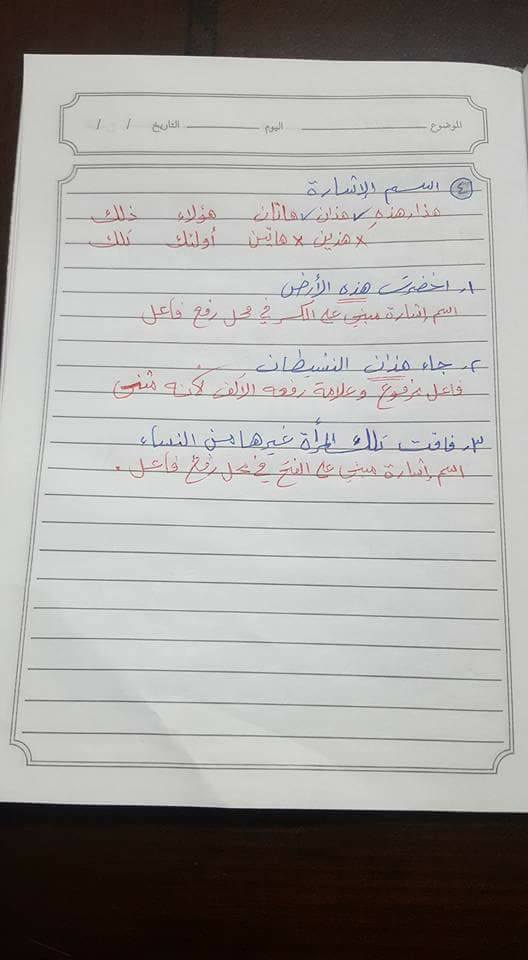 الموضوع ــــــ اليوم ــــــ التاريخ / /
٤ اسم الإشارة
هذا، هذه، هذان ✓ هاتان ✓ هؤلاء ذلك
× هذين × هاتين أولئك تلك
١. اخضرت هذه الأرض
اسم إشارة مبني على الكسر في محل رفع فاعل
٢. جاء هذان النشيطان
فاعل مرفوع وعلامة رفعه الألف لأنه مثنى
٣. فاقت تلك المرأة غيرها من النساء
اسم إشارة مبني على الفتح في محل رفع فاعل.